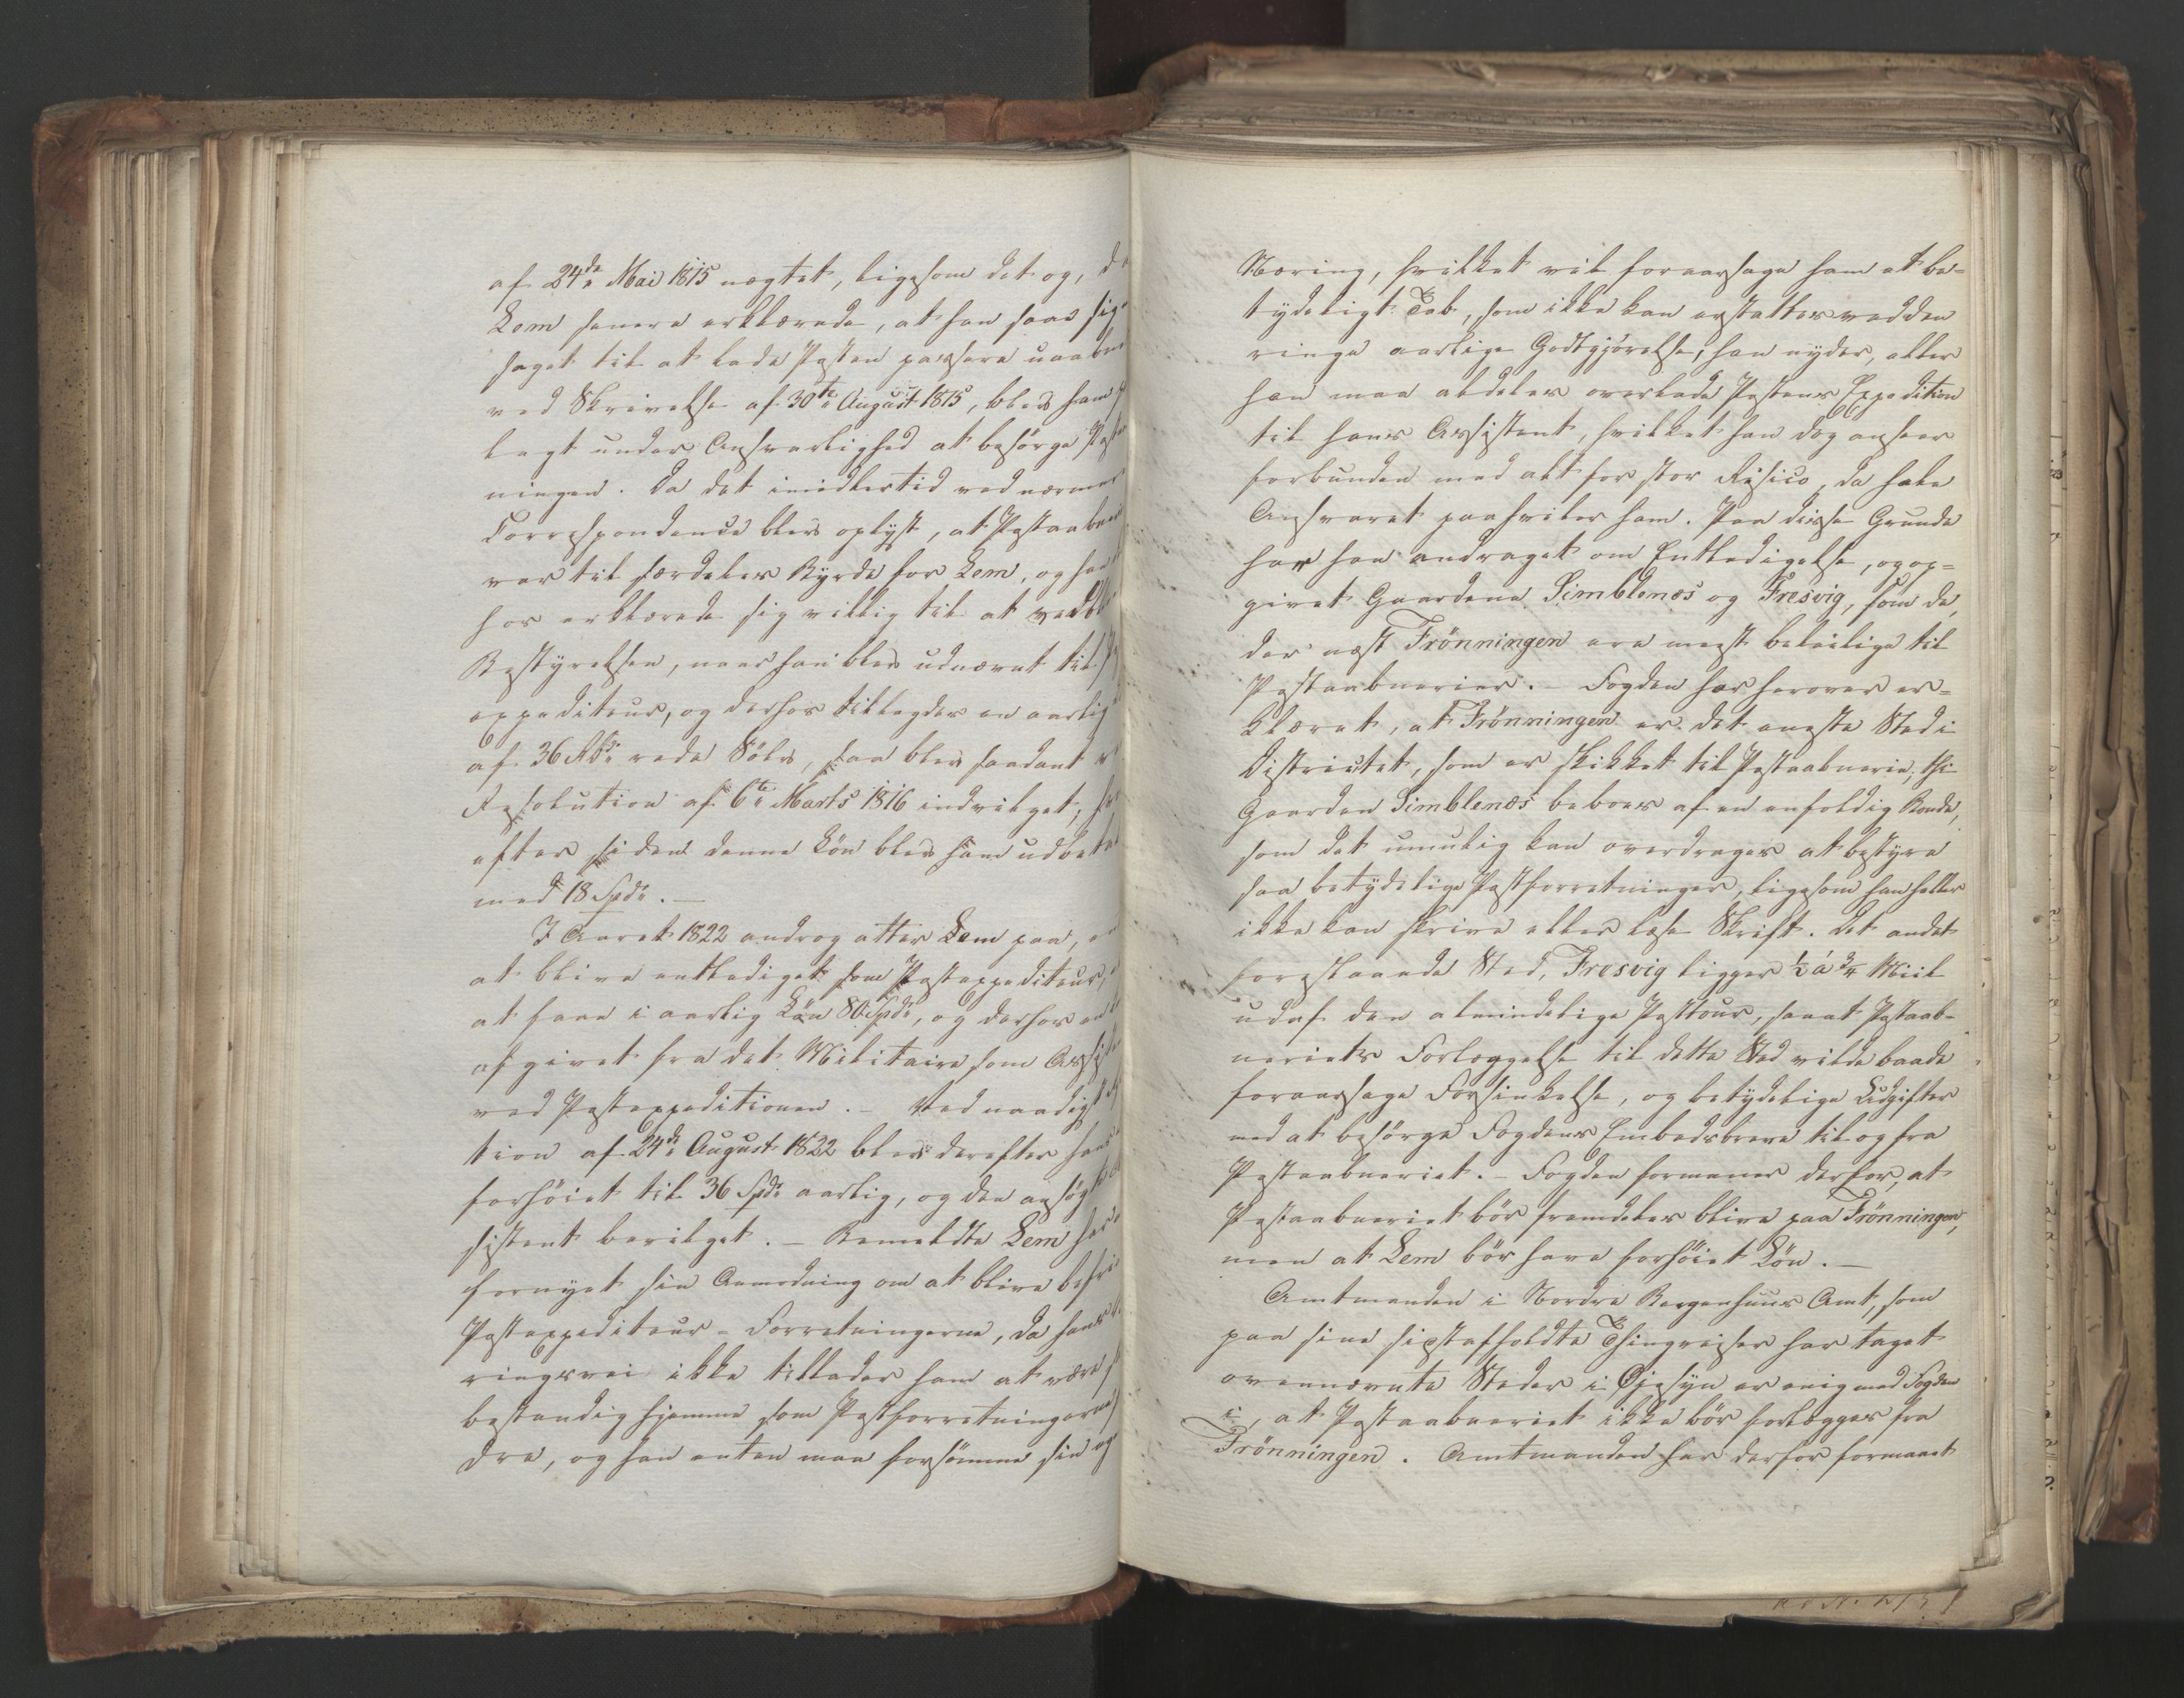 af 24de Mai 1815 nægtet, ligesom det og, da
Lem senere erklærede, at han saae sig
saget til at lade Posten passere uaabn
ved Skrivelse af 30te August 1815, blev ham
lagt under Ansvarlighed at besørge Posta
ningen. Da det imidlertid ved nærmere
Correspondence blev oplyst, at Postaabne
var til særdeles Byrde for Lem, og han
hos erklærede sig villig til at vedbl
Bestyrelsen, naar han blev udnævnt til P
expediteur, og derhos tillagdes en aarlig
af 36 Rbd. rede Sölv, saa blev saadant
Resolution af 6te Marts 1816 indvilget, hv
efter siden denne Lön blev ham udbetal
med 18 Spd. —
I Aaret 1822 androg atter Lem paa, en
at blive entlediget som Postexpediteur,
at faae i aarlig Lön 80 Spd., og derhos en
afgivet fra det Militaire som Assiste
ved Postexpeditionen. — Ved naadigst
tion af 24de August 1822 blev derefter hans
forhöiet til 36 Spd. aarlig, og den ansögte
sistent bevilget. — Bemeldte Lem har
fornyet sin Anmodning om at blive befri
Postexpediteur-Forretningerne, da hans
ringsvei ikke tillader ham at være
bestandig hjemme som Postforretningerne
dre, og han enten maa forsömme sin
Næring, hvilket vil foraarsage ham et be-
tydeligt Tab, som ikke kan erstattes ved den
ringe aarlige Godtgjörelse, han nyder, eller
han maa aldeles overlade Postens Expedition
til hans Assistent, hvilket han dog anseer
forbunden med alt for stor Risico, da hele
Ansvaret paahviler ham. Paa disse Grunde
har han andraget om Entledigelse, og op-
givet Gaardene Simblenæs og Fresvig, som de,
der næst Frönningen ere meest beleilige til
Postaabnerier. — Fogden har herover er-
klæret, at Frönningen er det eneste Sted i
Districtet, som er skikket til Postaabnerie; thi
Gaarden Simblenæs beboes af en enfoldig Bonde,
som det umulig kan overdrages at bestyre
saa betydelige Postforretninger, ligesom han heller
ikke kan skrive eller læse Skrift. Det andet
foreslaaede Sted, Fresvig ligger ½ á ¾ Miil
udaf den almindelige Posttour, samt Postaab-
neriets Forlæggelse til dette Sted vilde baade
foraarsage Forsinkelse, og betydelige Udgifter
med at besörge Fogdens Embedsbreve til og fra
Postaabneriet. — Fogden formener derfor, at
Postaabneriet bör fremdeles blive paa Frönningen,
men at Lem bör have forhöiet Lön. —
Amtmanden i Nordre Bergenhuus Amt, som
paa sine sidstafholdte Thingreiser har taget
ovennævnte Steder i Øjesyn er enig med Fogden
i, at Postaabneriet ikke bör forlægges fra
Frönningen. Amtmanden har derfor formeent